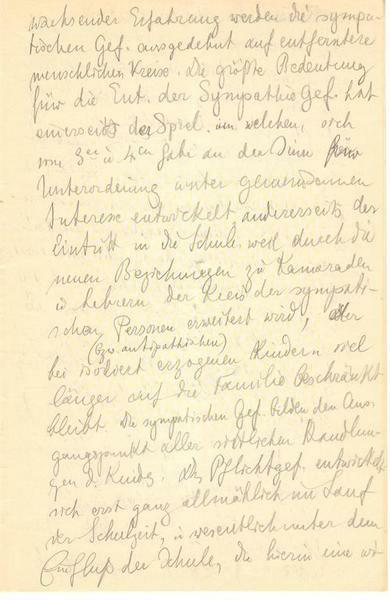 wachsender Erfahrung werden die sympa-
tischen Gef. ausgedehnt auf entferntere
menschlichen Kreise. Die größte Bedeutung
für die Ent. der Sympathie Gef. hat
einerseits das Spiel. in welchen, sich
vom 3en u 4en Jahr an der Sinn für
Unterordnung unter gemeinsamen
Interesse entwickelt andererseits der
Eintritt in die Schule weil durch die
neuen Beziehungen zu Kamaraden
u Lehrern der Kreis der sympati-
schen Personen erweitert wird, der
(bzw. antipathischen)
bei isoliert erzogenen Kindern viel
länger auf die Familie beschränkt
bleibt. Die sympatischen Gef. bilden den Aus-
gangspunkt aller sittlichen Handlun-
gen d. Kindes. Das Pflichtgef. entwickelt
sich erst ganz allmählich im Lauf
der Schulzeit, u wesentlich unter dem
Einfluß der Schule, die hierin eine wi-